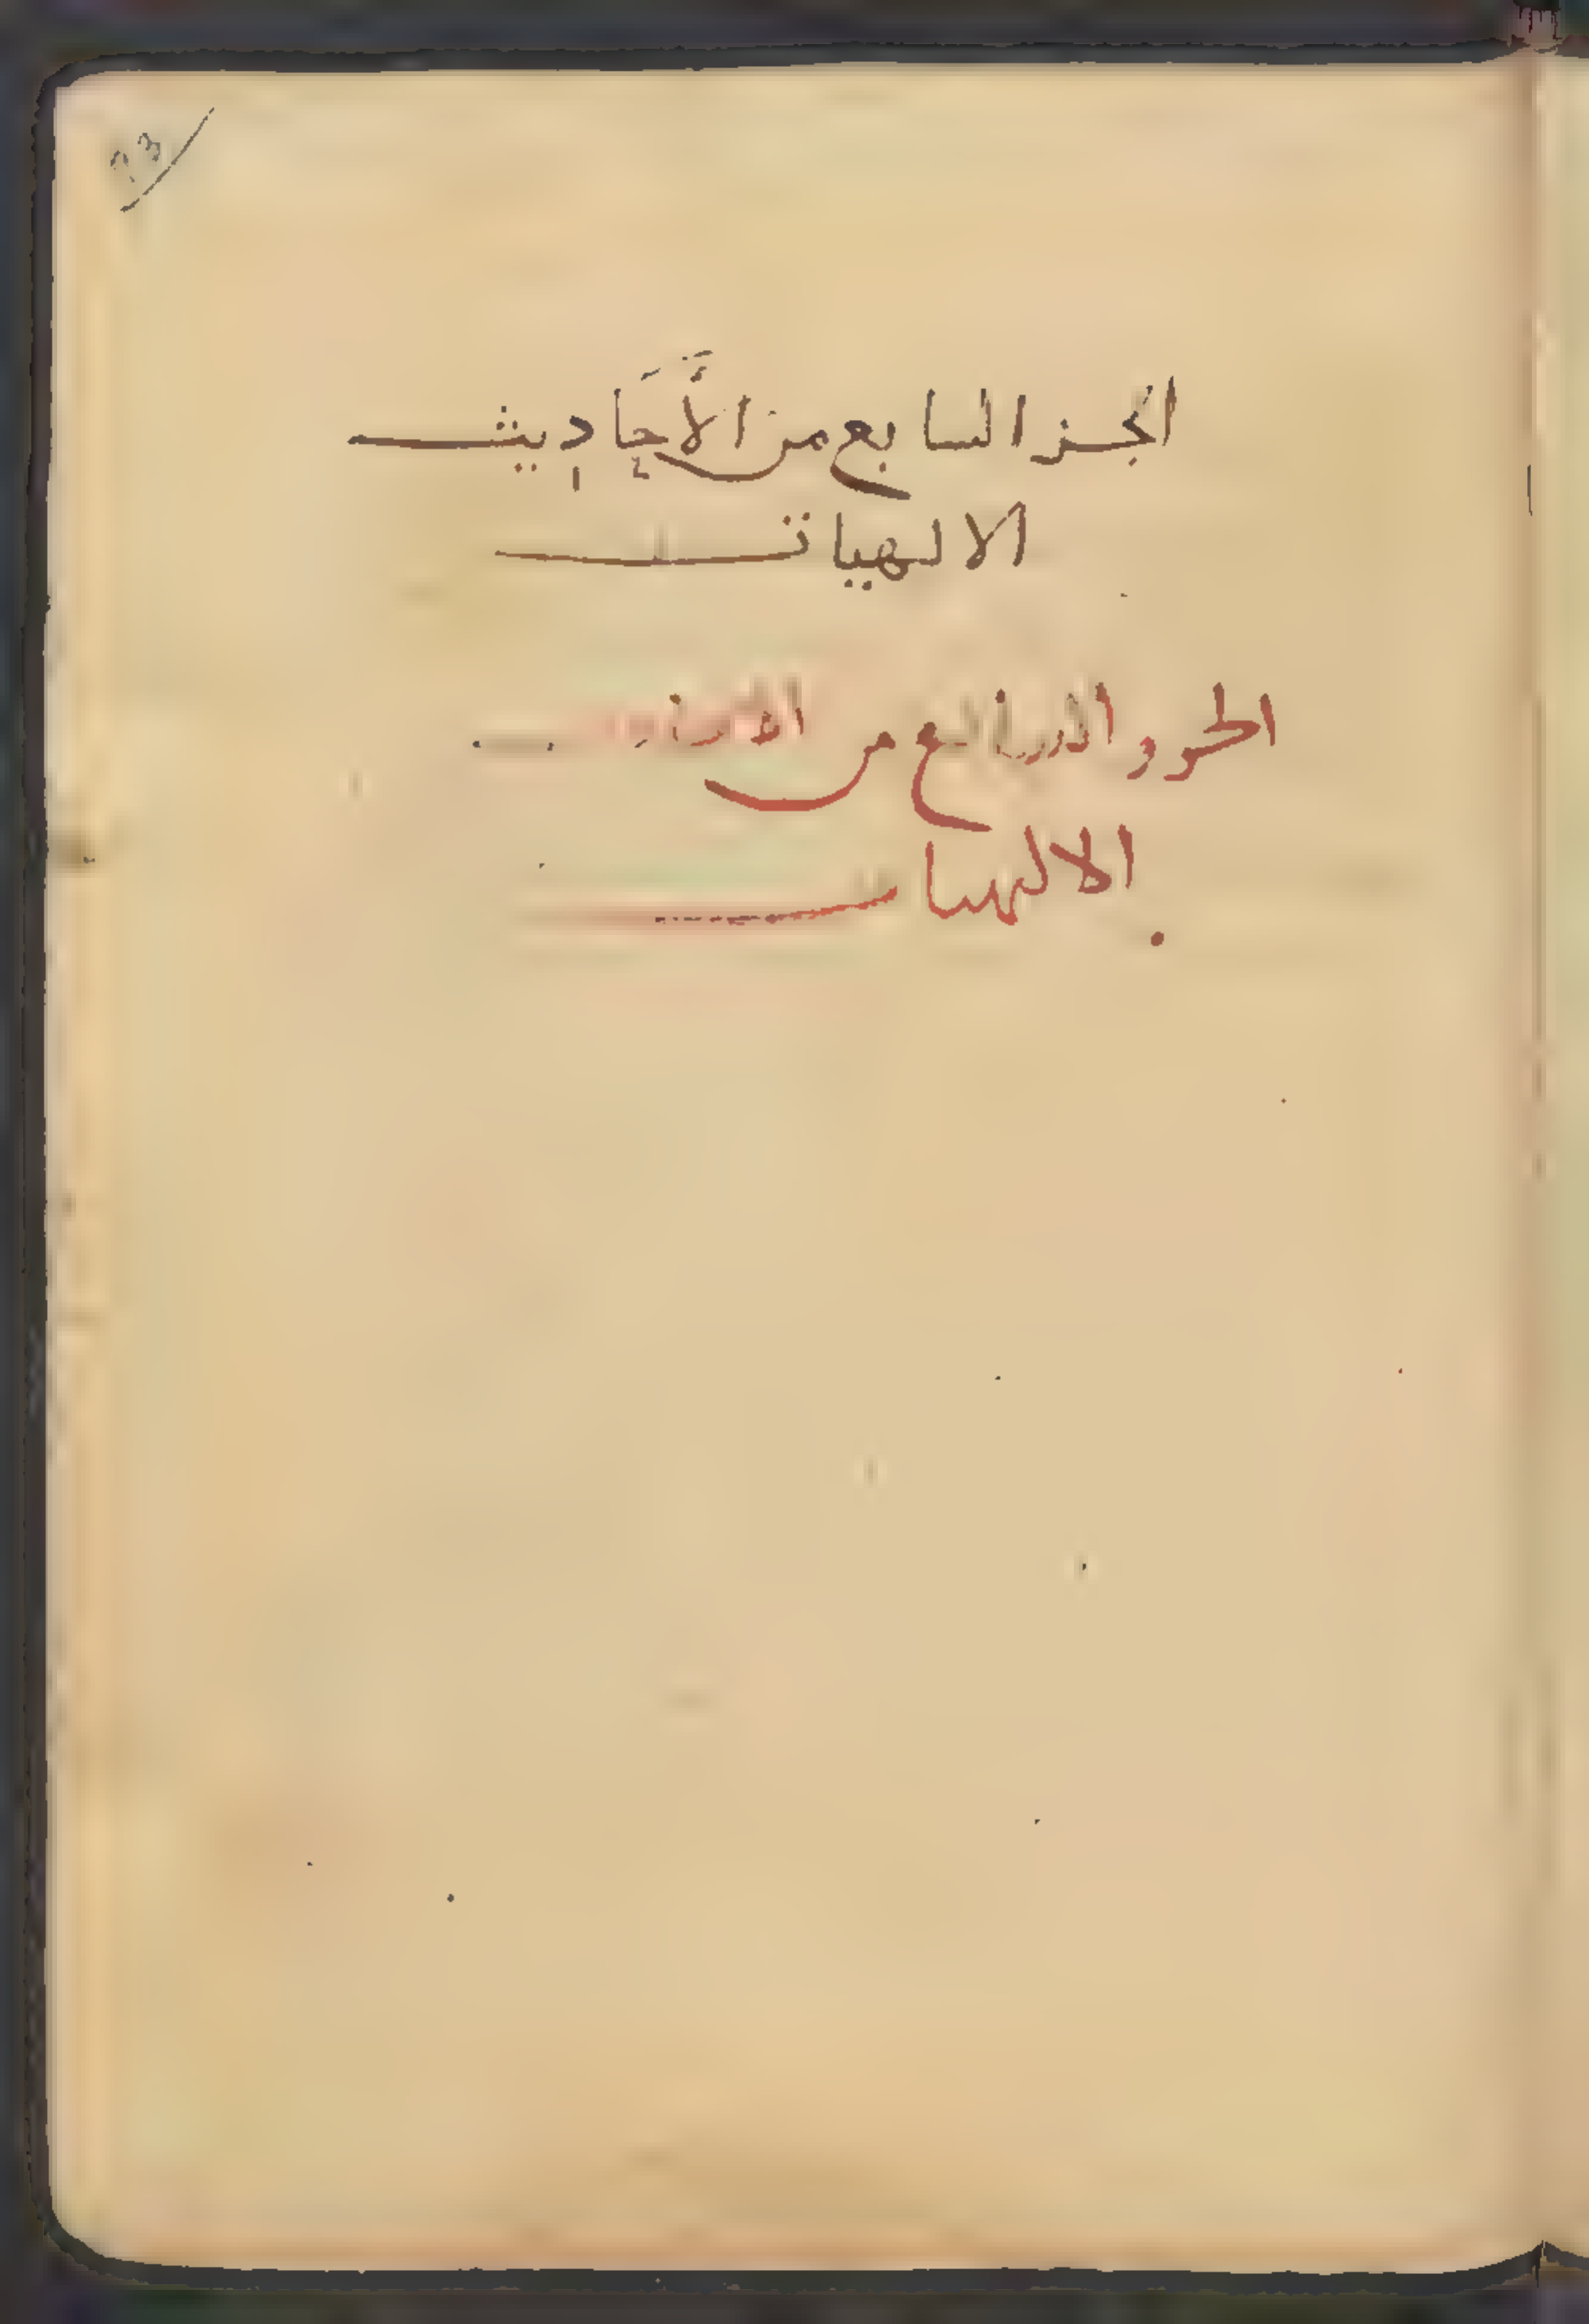 73
الجز السابع من الأَحَادِيث
الالهيات
الجزو الرابع من
الالهيات